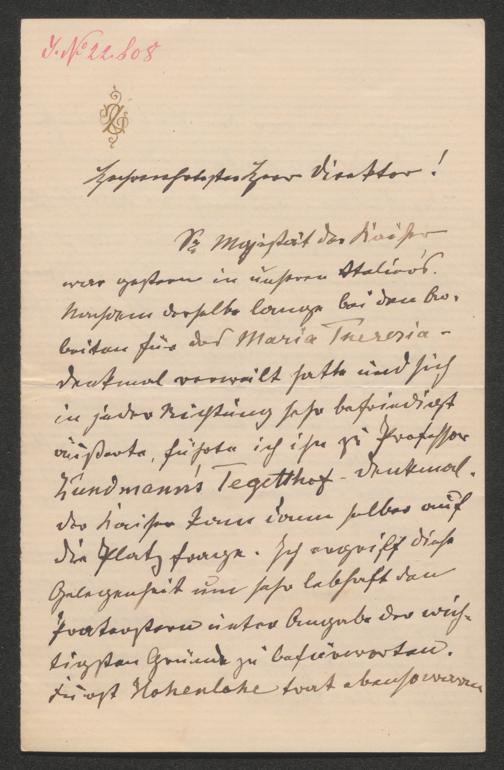 J. № 22.608
Hochverehrtester Herr Direktor!
Se Majestät der Kaiser
war gestern in unseren Atelier's.
Nachdem derselbe lange bei den Ar-
beiten für das Maria Theresia-
denkmal verweilt hatte und sich
in jeder Richtung sehr befriedigt
äußerte, führte ich ihn zu Professor
Kundmann's Tegetthof-denkmal.
der Kaiser kam dann selber auf
die Platzfrage. Ich ergriff diese
Gelegenheit um sehr lebhaft den
Praterstern unter Angabe der wich-
tigsten Gründe zu befürworten.
Fürst Hohenlohe trat ebenso warm